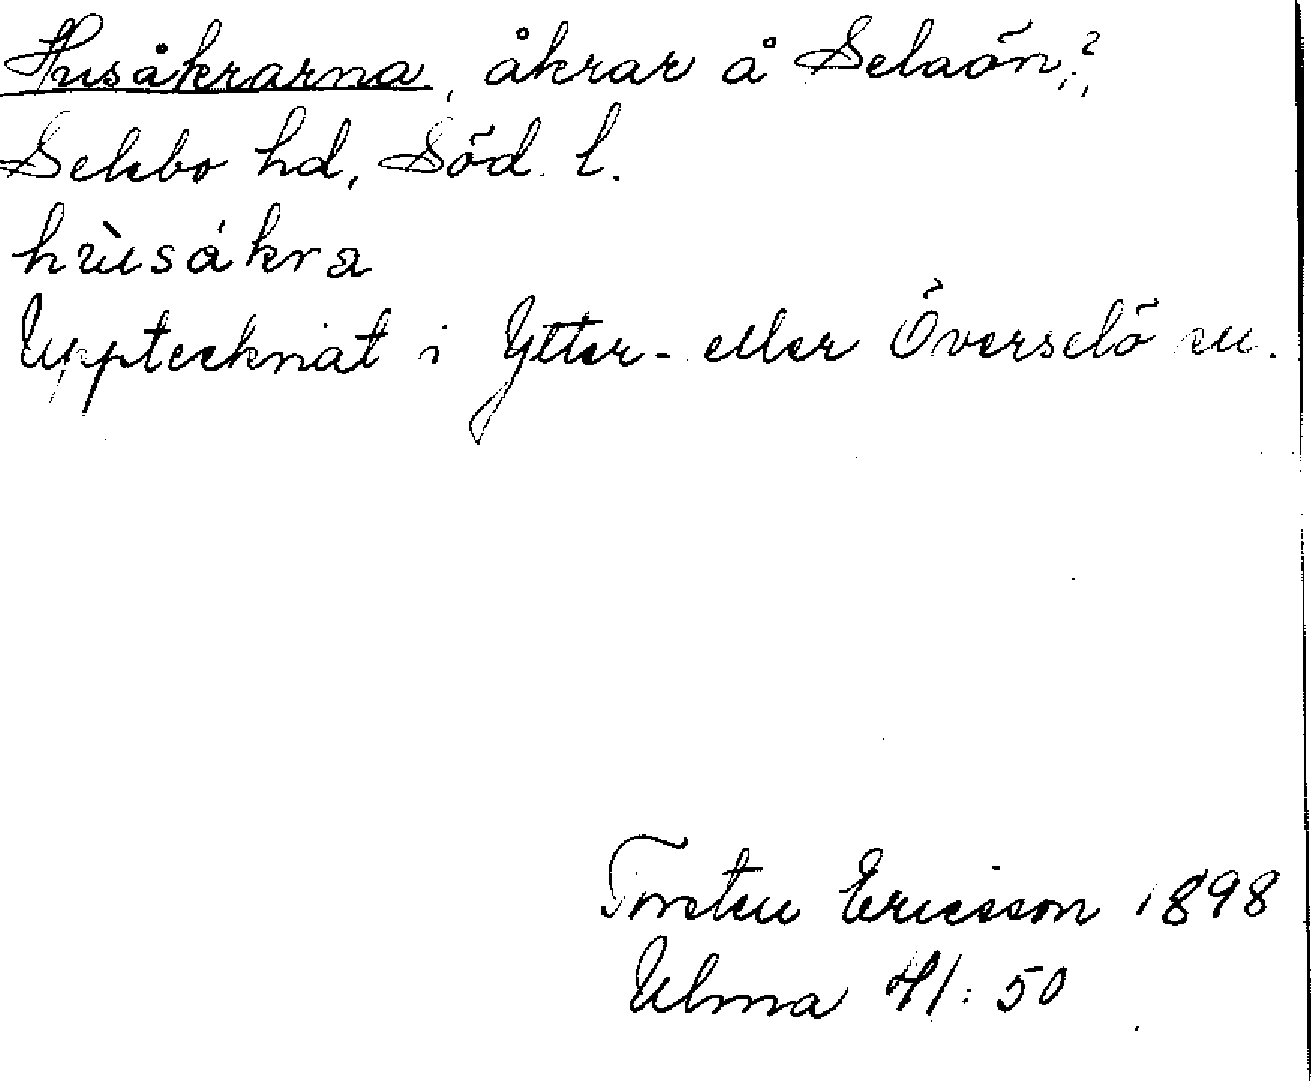 Husåkrarna, åkrar å Selaön?,
Selebo hd, Söd. l.
hùsåkra
Upptecknat i Ytter- eller Överselö sn.
Torsten Ericsson 1898
Ulma 41:50